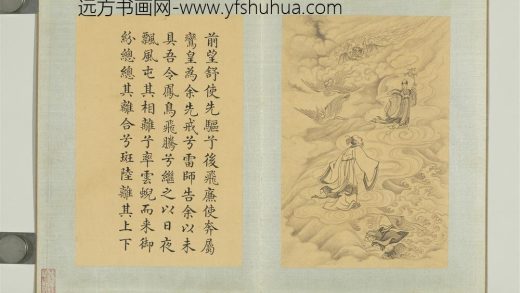 远方书画网-www.yfshuhua.com
前望舒使先驅兮後飛廉使奔屬
鸞皇為余先戒兮雷師告余以未
具吾令鳳鳥飛騰兮繼之以日夜
飄風屯其相離兮率雲蜺而来御
紛總總其離合兮斑陸離其上下